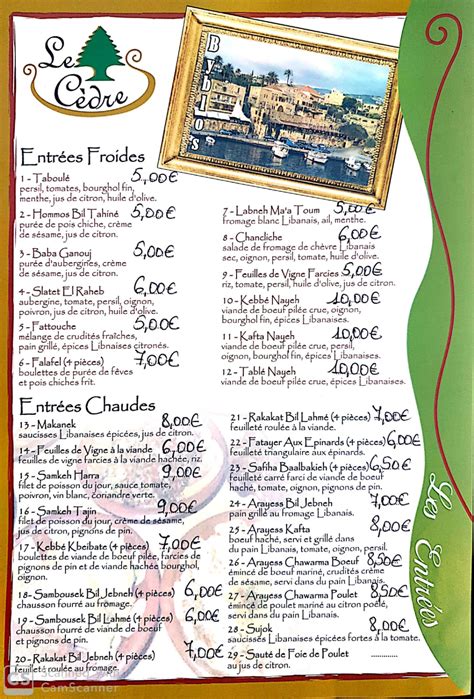 Le
Cèdre
Byblos
Entrées Froides
1 - Taboulé 5,00€
persil, tomates, bourghol fin,
menthe, jus de citron, huile d'olive.
2 - Hommos Bil Tahiné 5,00€
purée de pois chiche, crème
de sésame, jus de citron.
3 - Baba Ganouj 5,00€
purée d'aubergines, crème
de sésame, jus de citron.
4 - Slatet El Raheb 6,00€
aubergine, tomate, persil, oignon,
poivron, jus de citron, huile d'olive.
5 - Fattouche 5,00€
mélange de crudités fraîches,
pain grillé, épices Libanaises citronés.
6 - Falafel (4 pièces) 7,00€
boulettes de purée de fèves
et pois chiches frit.
7 - Labneh Ma'a Toum 5,00€
fromage blanc Libanais, ail, menthe.
8 - Chancliche 6,00€
salade de fromage de chèvre Libanais
sec, oignon, persil, tomate, huile d'olive.
9 - Feuilles de Vigne Farcies 5,00€
riz, tomate, persil, huile d'olive, jus de citron.
10 - Kebbé Nayeh 10,00€
viande de boeuf pilée crue, oignon,
bourghol fin, épices Libanaises.
11 - Kafta Nayeh 10,00€
viande de boeuf pilée crue, persil,
oignon, bourghol fin, épices Libanaises.
12 - Tablé Nayeh 10,00€
viande de boeuf pilée crue, épices Libanaises.
Entrées Chaudes
13 - Makanek 8,00€
saucisses Libanaises épicées, jus de citron.
14 - Feuilles de Vigne à la viande 6,00€
feuilles de vigne farcies à la viande hachée, riz.
15 - Samkeh Harra 9,00€
filet de poisson du jour, sauce tomate,
poivron, vin blanc, coriandre verte.
16 - Samkeh Tajin 9,00€
filet de poisson du jour, crème de sésame,
jus de citron, oignons, pignons de pin.
17 - Kebbé Kbeibate (4 pièces) 7,00€
boulettes de viande de boeuf pilée, farcies de
pignons de pin et de viande hachée bourghol
fin.
18 - Sambousek Bil Jebneh (4 pièces) 6,00€
chausson fourré au fromage.
19 - Sambousek Bil Lahmé (4 pièces) 6,00€
chausson fourré de viande de boeuf
et pignons de pin.
20 - Rakakat Bil Jebneh (4 pièces) 7,00€
feuilleté roulée au fromage.
21 - Rakakat Bil Lahmé (4 pièces) 7,00€
feuilleté roulée à la viande.
22 - Fatayer Aux Epinards (4 pièces) 6,00€
feuilleté triangulaire aux épinards.
23 - Safiha Baalbakieh (4 pièces) 6,50€
feuilleté carré farci de viande de boeuf
hachée, tomate, oignon, pignons de pin.
24 - Arayess Bil Jebneh 7,00€
pain grillé au fromage Libanais.
25 - Arayess Kafta 8,00€
boeuf haché, servi et grillé dans
du pain Libanais, tomate, oignon, persil.
26 - Arayess Chawarma Boeuf 8,50€
émincé de boeuf mariné, crudité crème
de sésame, servi dans du pain Libanais.
27 - Arayess Chawarma Poulet 8,50€
émincé de poulet mariné au citron poêlé,
servi dans du pain Libanais.
28 - Sujok 8,00€
saucisses Libanaises épicées fortes à la tomate.
29 - Sauté de Foie de Poulet
au jus de citron.
Les Entrées
CS
Scanned with
CamScanner